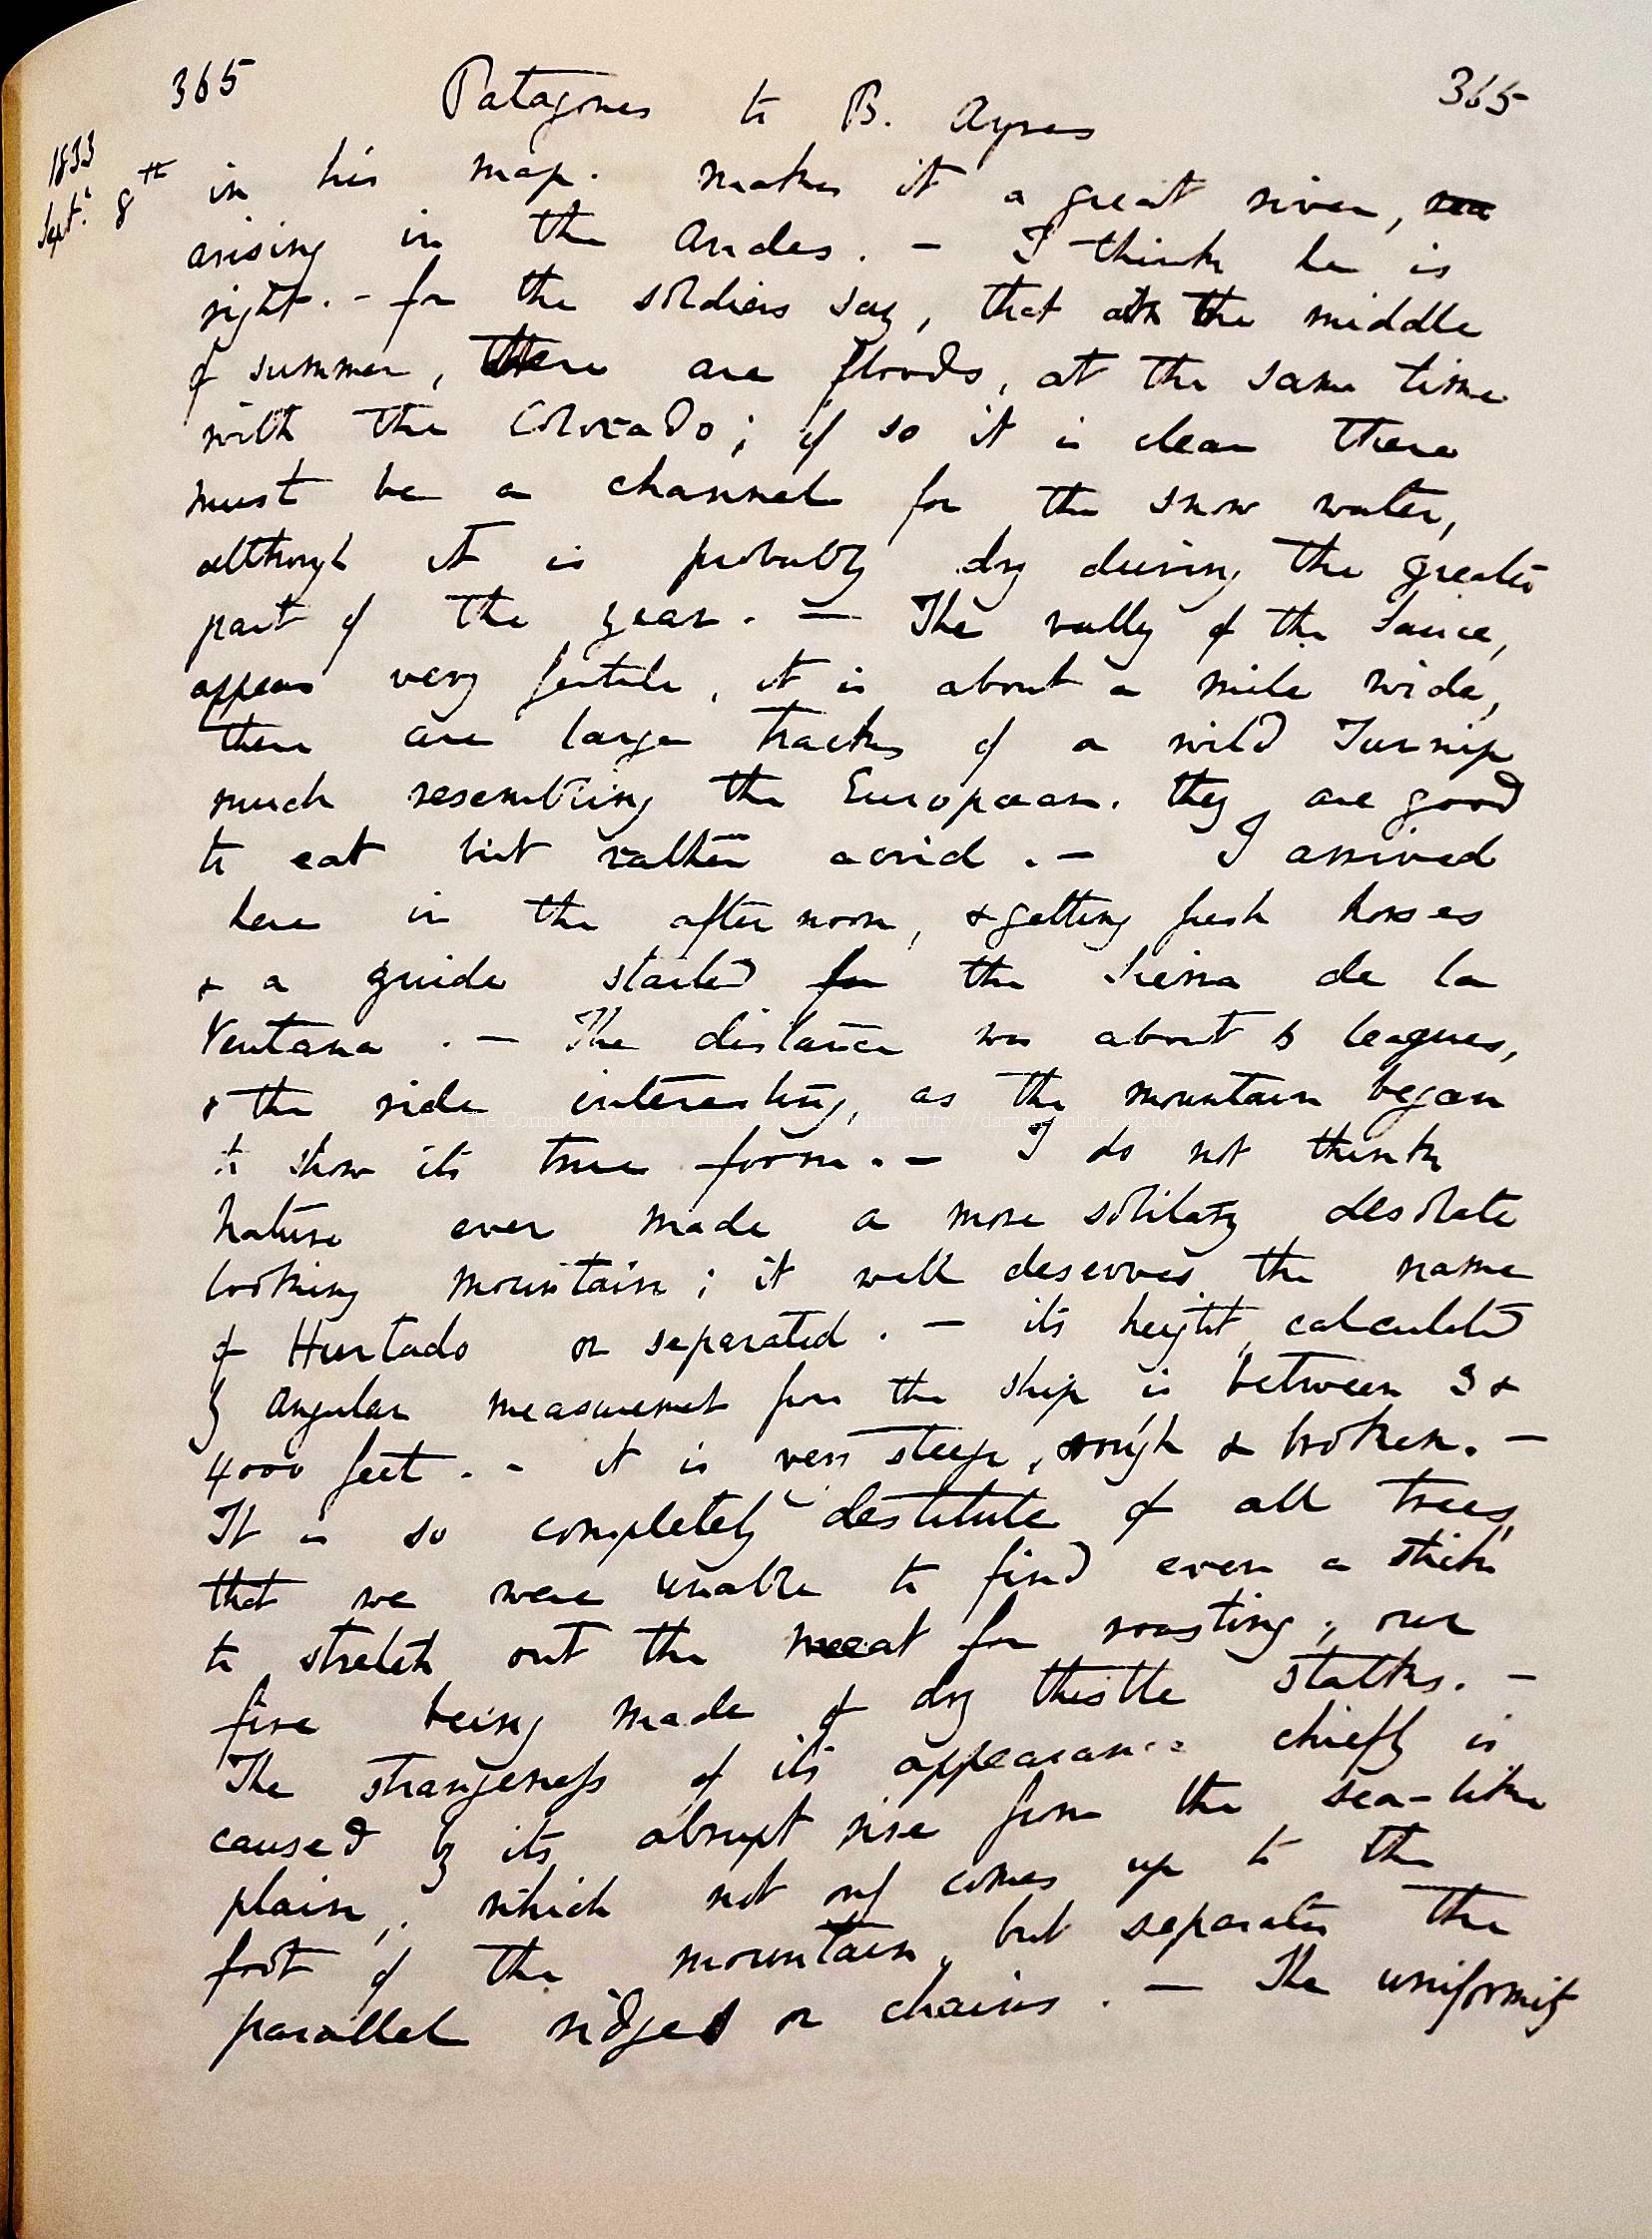 365 Patagones to B. Ayres 365
1833
Sept. 8th in his map. makes it a great river,
arising in the Andes. — I think he is
right. - for the soldiers say, that at the middle
of summer, there are floods, at the same time
with the Colorado; if so it is clear there
must be a channel for the snow water,
although it is probably dry during the greater
part of the year. — The vally of the Sauce,
appears very fertile, it is about a mile wide,
there are large tracks of a wild Turnip
much resembling the European. they are good
to eat but rather acrid. — I arrived
here in the after noon, & getting fresh horses
& a guide started for the Sierra de la
Ventana. — The distance was about 6 leagues,
& the ride interesting, as the mountain began
The Complete Work of Charles Darwin Online (http://darwin-online.org.uk/)
to show its true form. — I do not think
Nature ever made a more solitary desolate
looking mountain; it well deserves the name
of Hurtado or separated. — its height, calculated
by angular measurement from the ship is between 3 &
4000 feet. - it is very steep, rough & broken. —
It is so completely destitute of all trees,
that we were unable to find even a stick
to stretch out the meat for roasting; our
fire being made of dry thistle stalks. —
The strangeness of its appearance chiefly is
caused by its abrupt rise from the sea-like
plain, which not only comes up to the
foot of the mountain, but separates the
parallel ridges or chains. — The uniformity